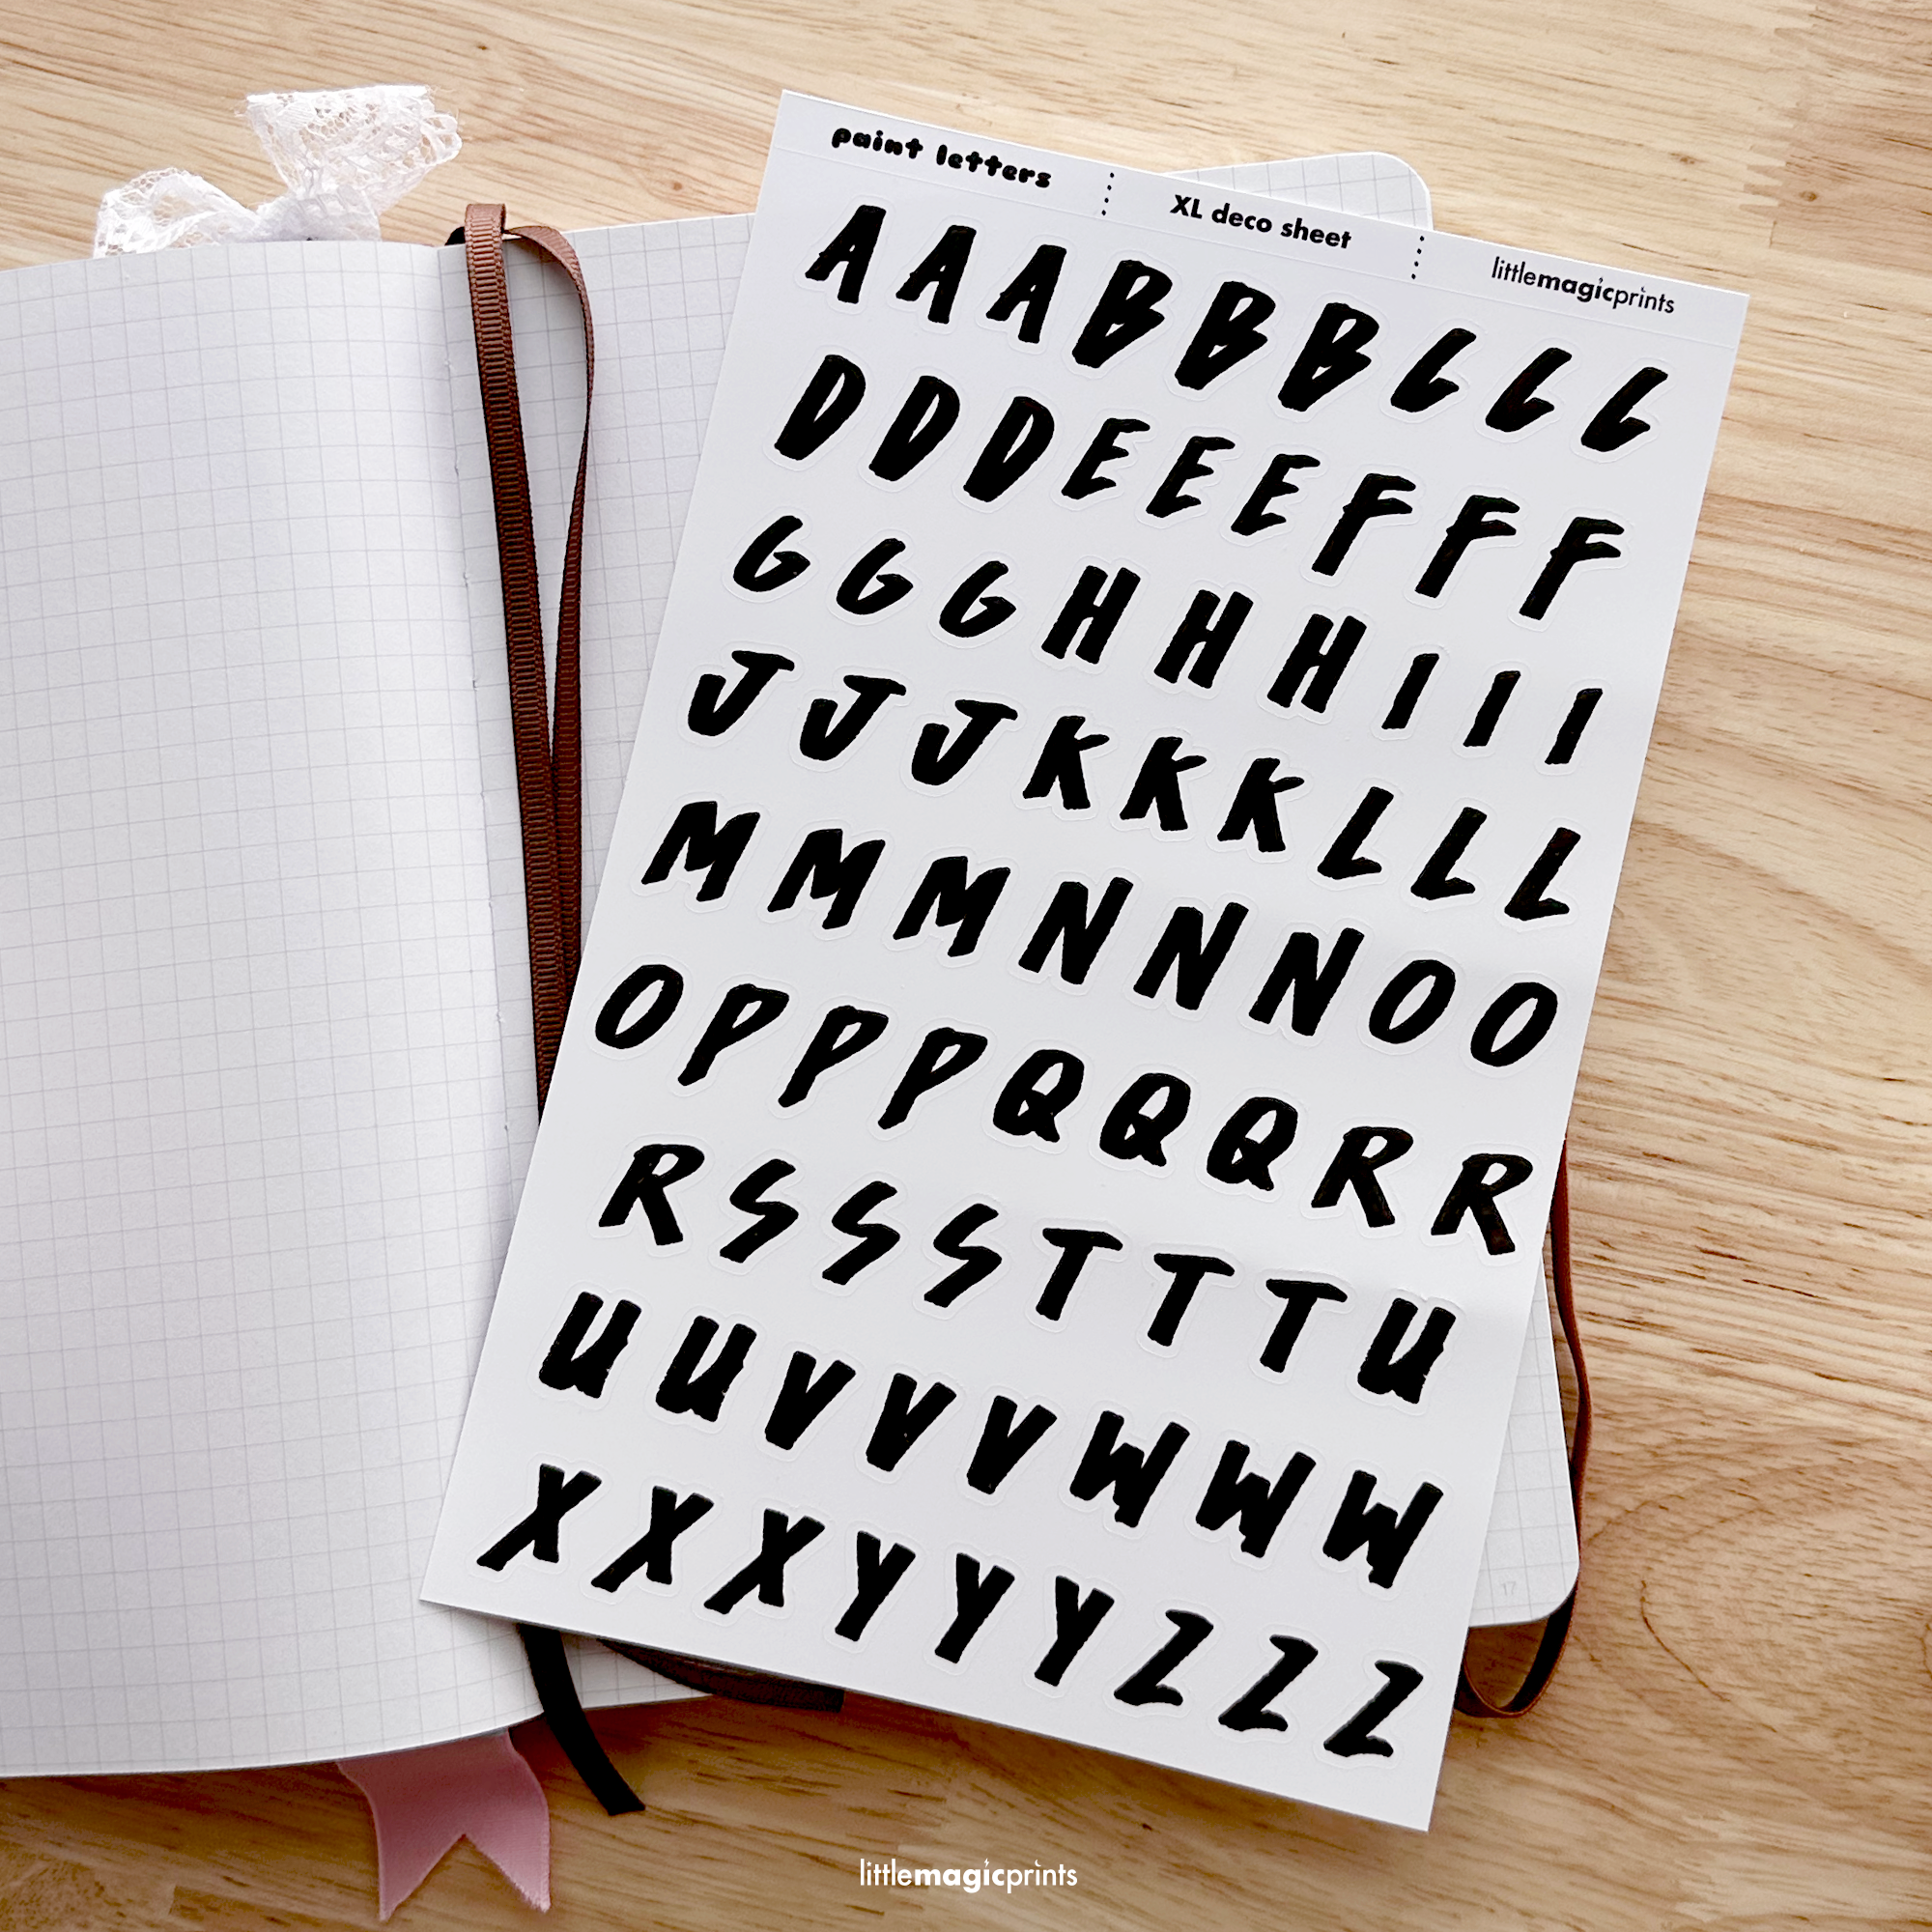 paint letters XL deco sheet littlemagicprints
A A A B B B C C C
D D D E E E F F F
G G G H H H I I I
J J J K K K L L L
M M M N N N O O
O P P P Q Q Q R R
R S S S T T T U
U U V V V W W W
X X X Y Y Y Z Z Z
17
littlemagicprints